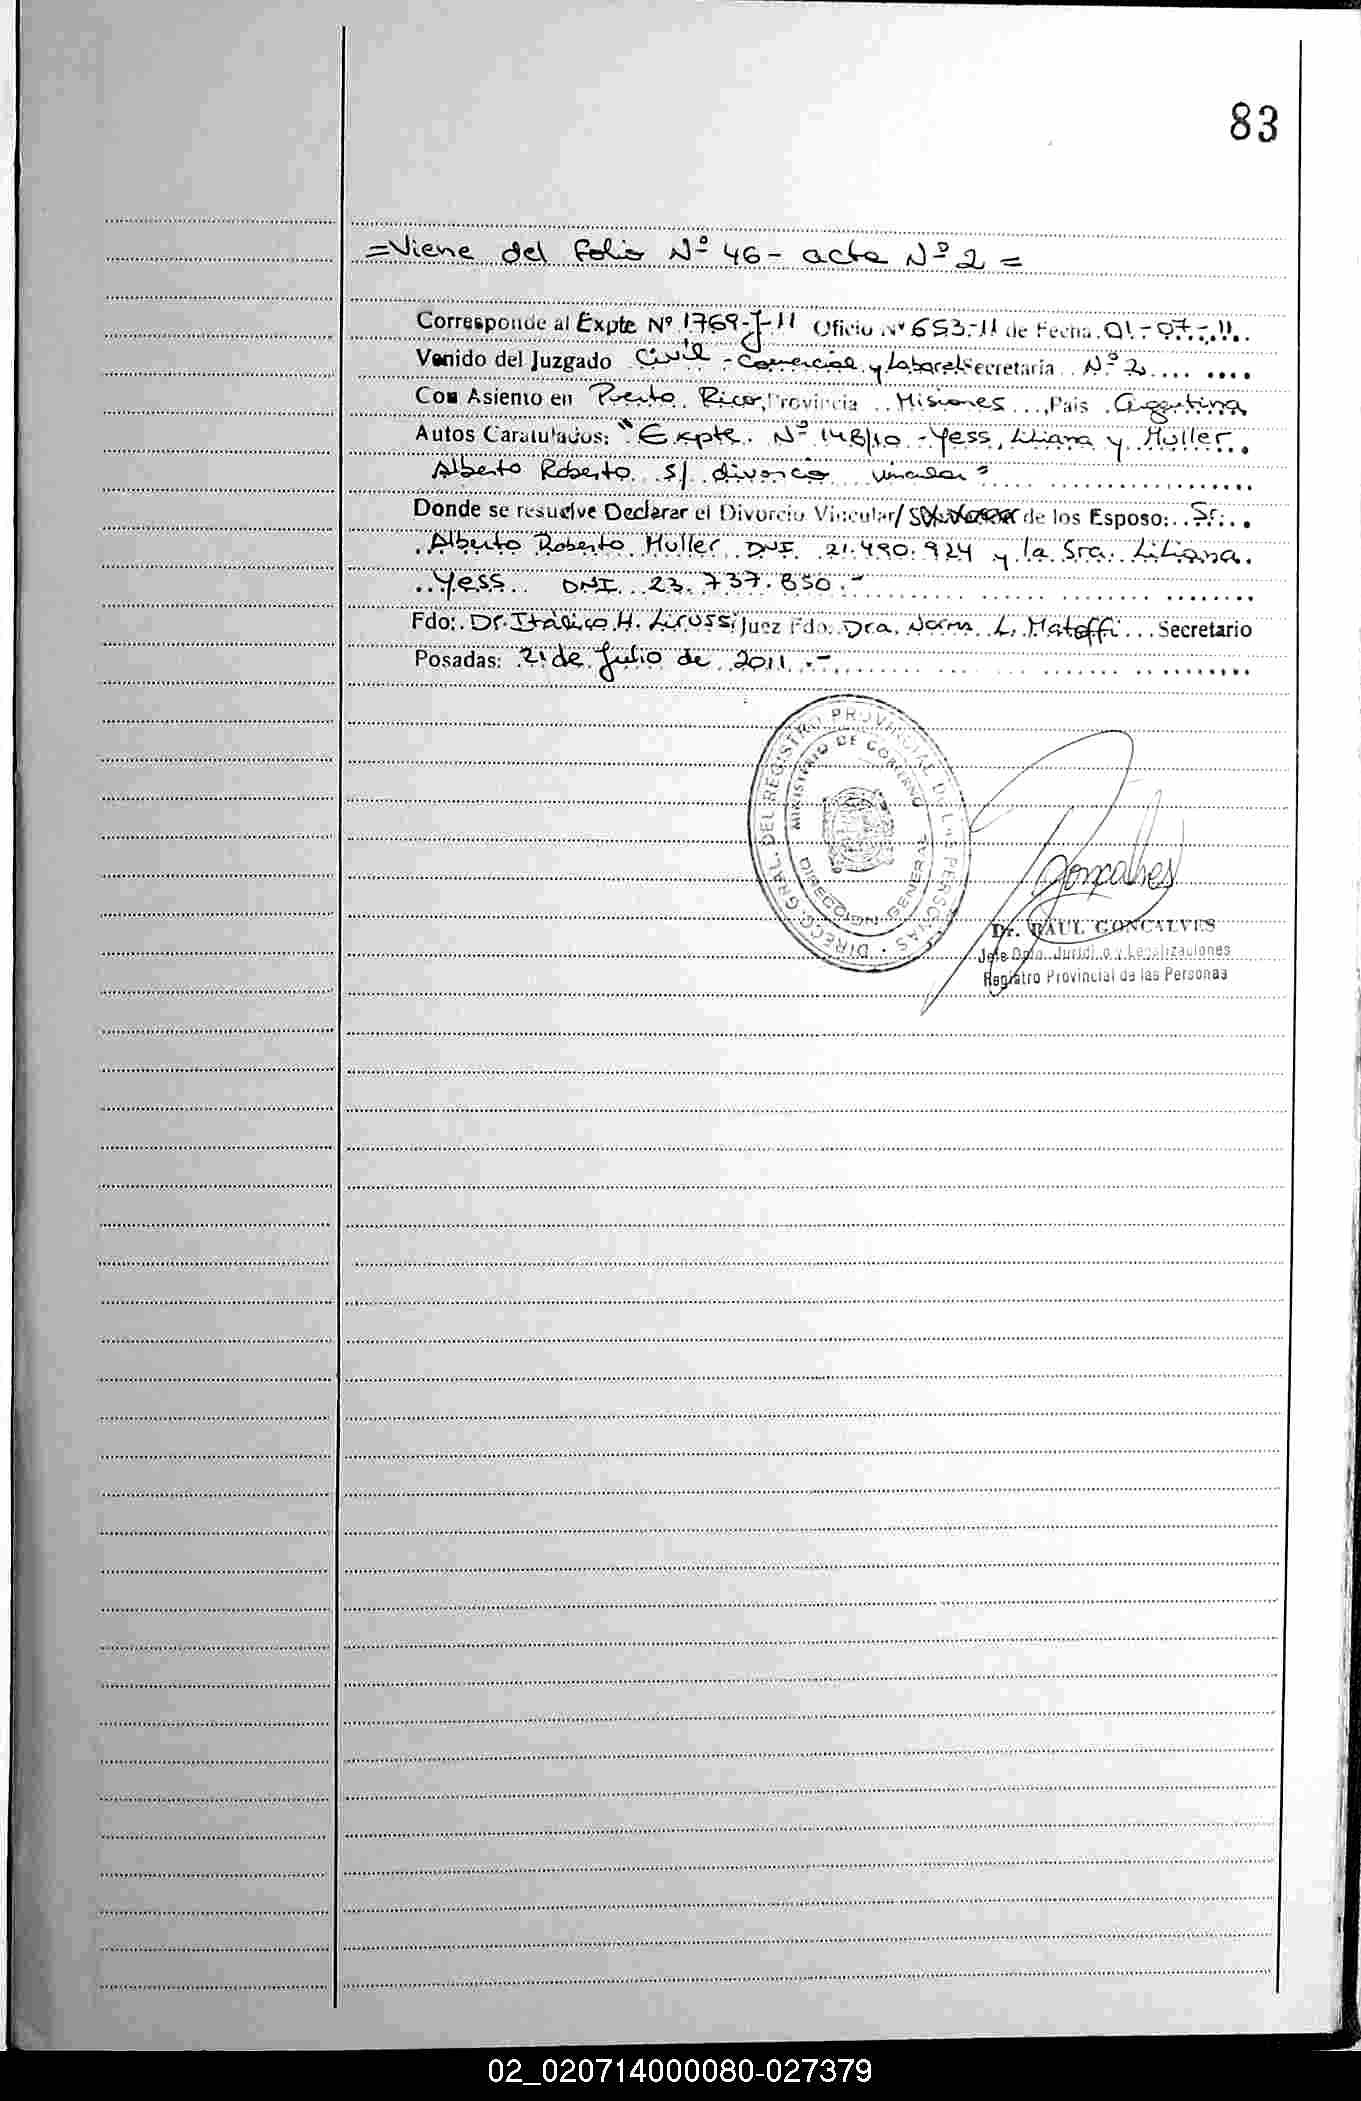 83
=Viene del folio Nº 46 - acta Nº 2 =
Corresponde al Expte Nº 1769-J-11 Oficio Nº 653-11 de Fecha 01-07-11.
Venido del Juzgado Civil - Comercial y Laboral Secretaría Nº 2
Con Asiento en Puerto Rico, Provincia Misiones, País Argentina
Autos Caratulados: "Expte. Nº 148/10 - Yess, Liliana y Muller
Alberto Roberto s/ divorcio vincular"
Donde se resuelve Declarar el Divorcio Vincular/ de los Esposo: Sr.
Alberto Roberto Muller DNI 21.490.924 y la Sra. Liliana
Yess DNI 23.737.850.-
Fdo: Dr. Itálico H. Lirussi Juez Fdo: Dra. Norma L. Matoffi Secretario
Posadas: 21 de Julio de 2011.-
DIRECC. GRAL. DEL REGISTRO PROVINCIAL DE LAS PERSONAS
MINISTERIO DE GOBIERNO
DIRECCION GENERAL
Goncalves
Dr. RAUL GONCALVES
Jefe Dpto. Jurídico y Legalizaciones
Registro Provincial de las Personas
02_020714000080-027379